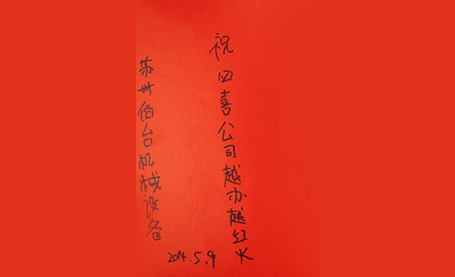 祝四喜公司越办越红火
苏州伯台机械设备
2014.5.9